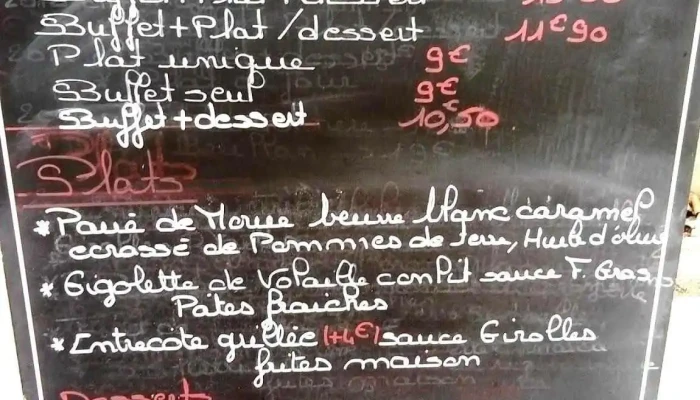 Buffet+Plat/dessert 11€90
Plat unique 9€
Buffet seul 9€
Buffet+dessert 10,50€
Plats
* Pavé de Morue beurre blanc caramel
ecrassé de Pommes de terre, Huile d'olive
* Gigolette de Volaille confit sauce F. Gras
Pates fraiches
* Entrecote grillée (+4€) sauce Girolles
frites maison
Desserts